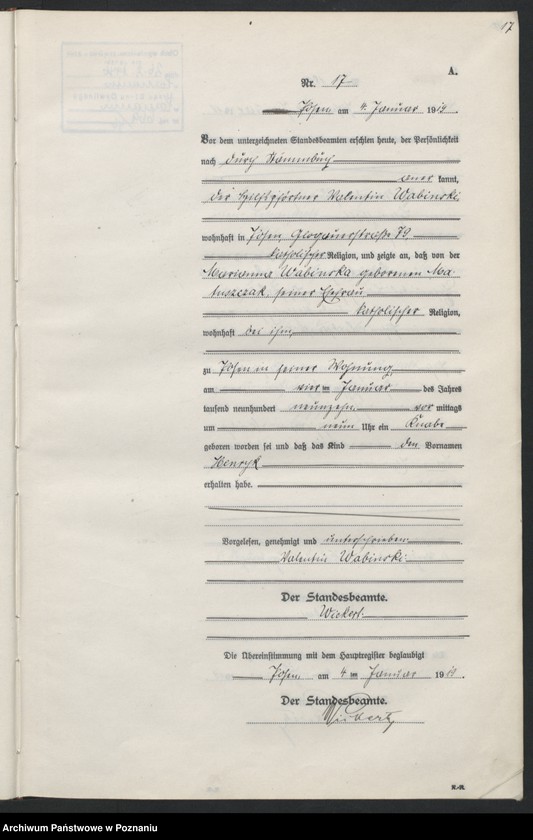 17
A.
Nr. 17
Posen am 4. Januar 1919
Vor dem unterzeichneten Standesbeamten erschien heute, der Persönlichkeit
nach durch Stammbuch
aner kannt,
der Hilfspförtner Valentin Wabinski
wohnhaft in Posen, Glogauerstraße 79
katholischer Religion, und zeigte an, daß von der
Marianna Wabinska geborenen Ma
tuszczak, seiner Ehefrau
katholischer Religion,
wohnhaft bei ihm,
zu Posen in seiner Wohnung
am vier ten Januar des Jahres
tausend neunhundert neunzehn vor mittags
um neun Uhr ein Knabe
geboren worden sei und daß das Kind den Vornamen
Henryk
erhalten habe.
Vorgelesen, genehmigt und unterschrieben
Valentin Wabinski
Der Standesbeamte.
Die Übereinstimmung mit dem Hauptregister beglaubigt
Posen am 4 ten Januar 1919.
Der Standesbeamte.
Archiwum Państwowe w Poznaniu